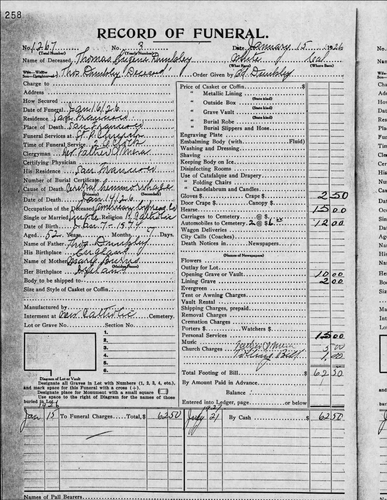 258
RECORD OF FUNERAL.
No. 1267 No. 8 Date January 15 1926
(Total Number) (Yearly Number)
Name of Deceased, Thomas Eugene White
(What Race) (Where Born)
Order Given by
Charge to
Address
How Secured
Date of Funeral, Jan 16/26
Residence San Francisco
Place of Death, San Francisco
Funeral Services at
Time of Funeral Service
Clergyman Rev Father
Certifying Physician
His Residence San Francisco
Number of Burial Certificate
Cause of Death Cerebral hemorrhage
Date of Death Jan 14/26
Occupation of the Deceased
Single or Married Single Religion R. Catholic
Date of Birth Jan
Aged Years, Months, Days
Name of Father Thos
His Birthplace England
Name of Mother Mary Burns
Her Birthplace Ireland
Body to be shipped to
Size and Style of Casket or Coffin
Manufactured by
Interment at New Catholic Cemetery.
Lot or Grave No. Section No.
1.
2.
3.
4.
5.
6.
Diagram of Lot or Vault
Designate all Graves in Lot with Numbers (1, 2, 3, 4, etc.),
and mark space for this Funeral with a cross (+).
Designate place for Monument with a small square
Use space to right of Diagram for the names of those
buried in Lot.
Price of Casket or Coffin
" Metallic Lining
" Outside Box
" Grave Vault
" Burial Robe
" Burial Slippers and Hose
Engraving Plate
Embalming Body (with Fluid)
Washing and Dressing
Shaving
Keeping Body on Ice
Disinfecting Rooms
Use of Catafalque and Drapery
" Folding Chairs
" Candelabrum and Candles
Gloves Crape 2 50
Door Crape Candles
Hearse 15 00
Carriages to Cemetery @
Automobiles to Cemetery 2 @ 6 12 00
Wagon Deliveries
City Calls (Coaches)
Death Notices in Newspapers
(Names of Newspapers)
Flowers
Outlay for Lot
Opening Grave or Vault 10 00
Lining Grave 2 00
Evergreen
Tent or Awning Charges
Vault Rental
Shipping Charges, prepaid
Removal Charges
Cremation Charges
Porters $ Watchers $
Personal Services 15 00
Music
Church Charges 5 00
Total Footing of Bill 62 50
By Amount Paid in Advance
Balance
Entered into Ledger, page or below.
1926 1927
Jan 15 To Funeral Charges, Total, $ 62 50 July 21 By Cash $ 62 50
Name of Pall Bearers